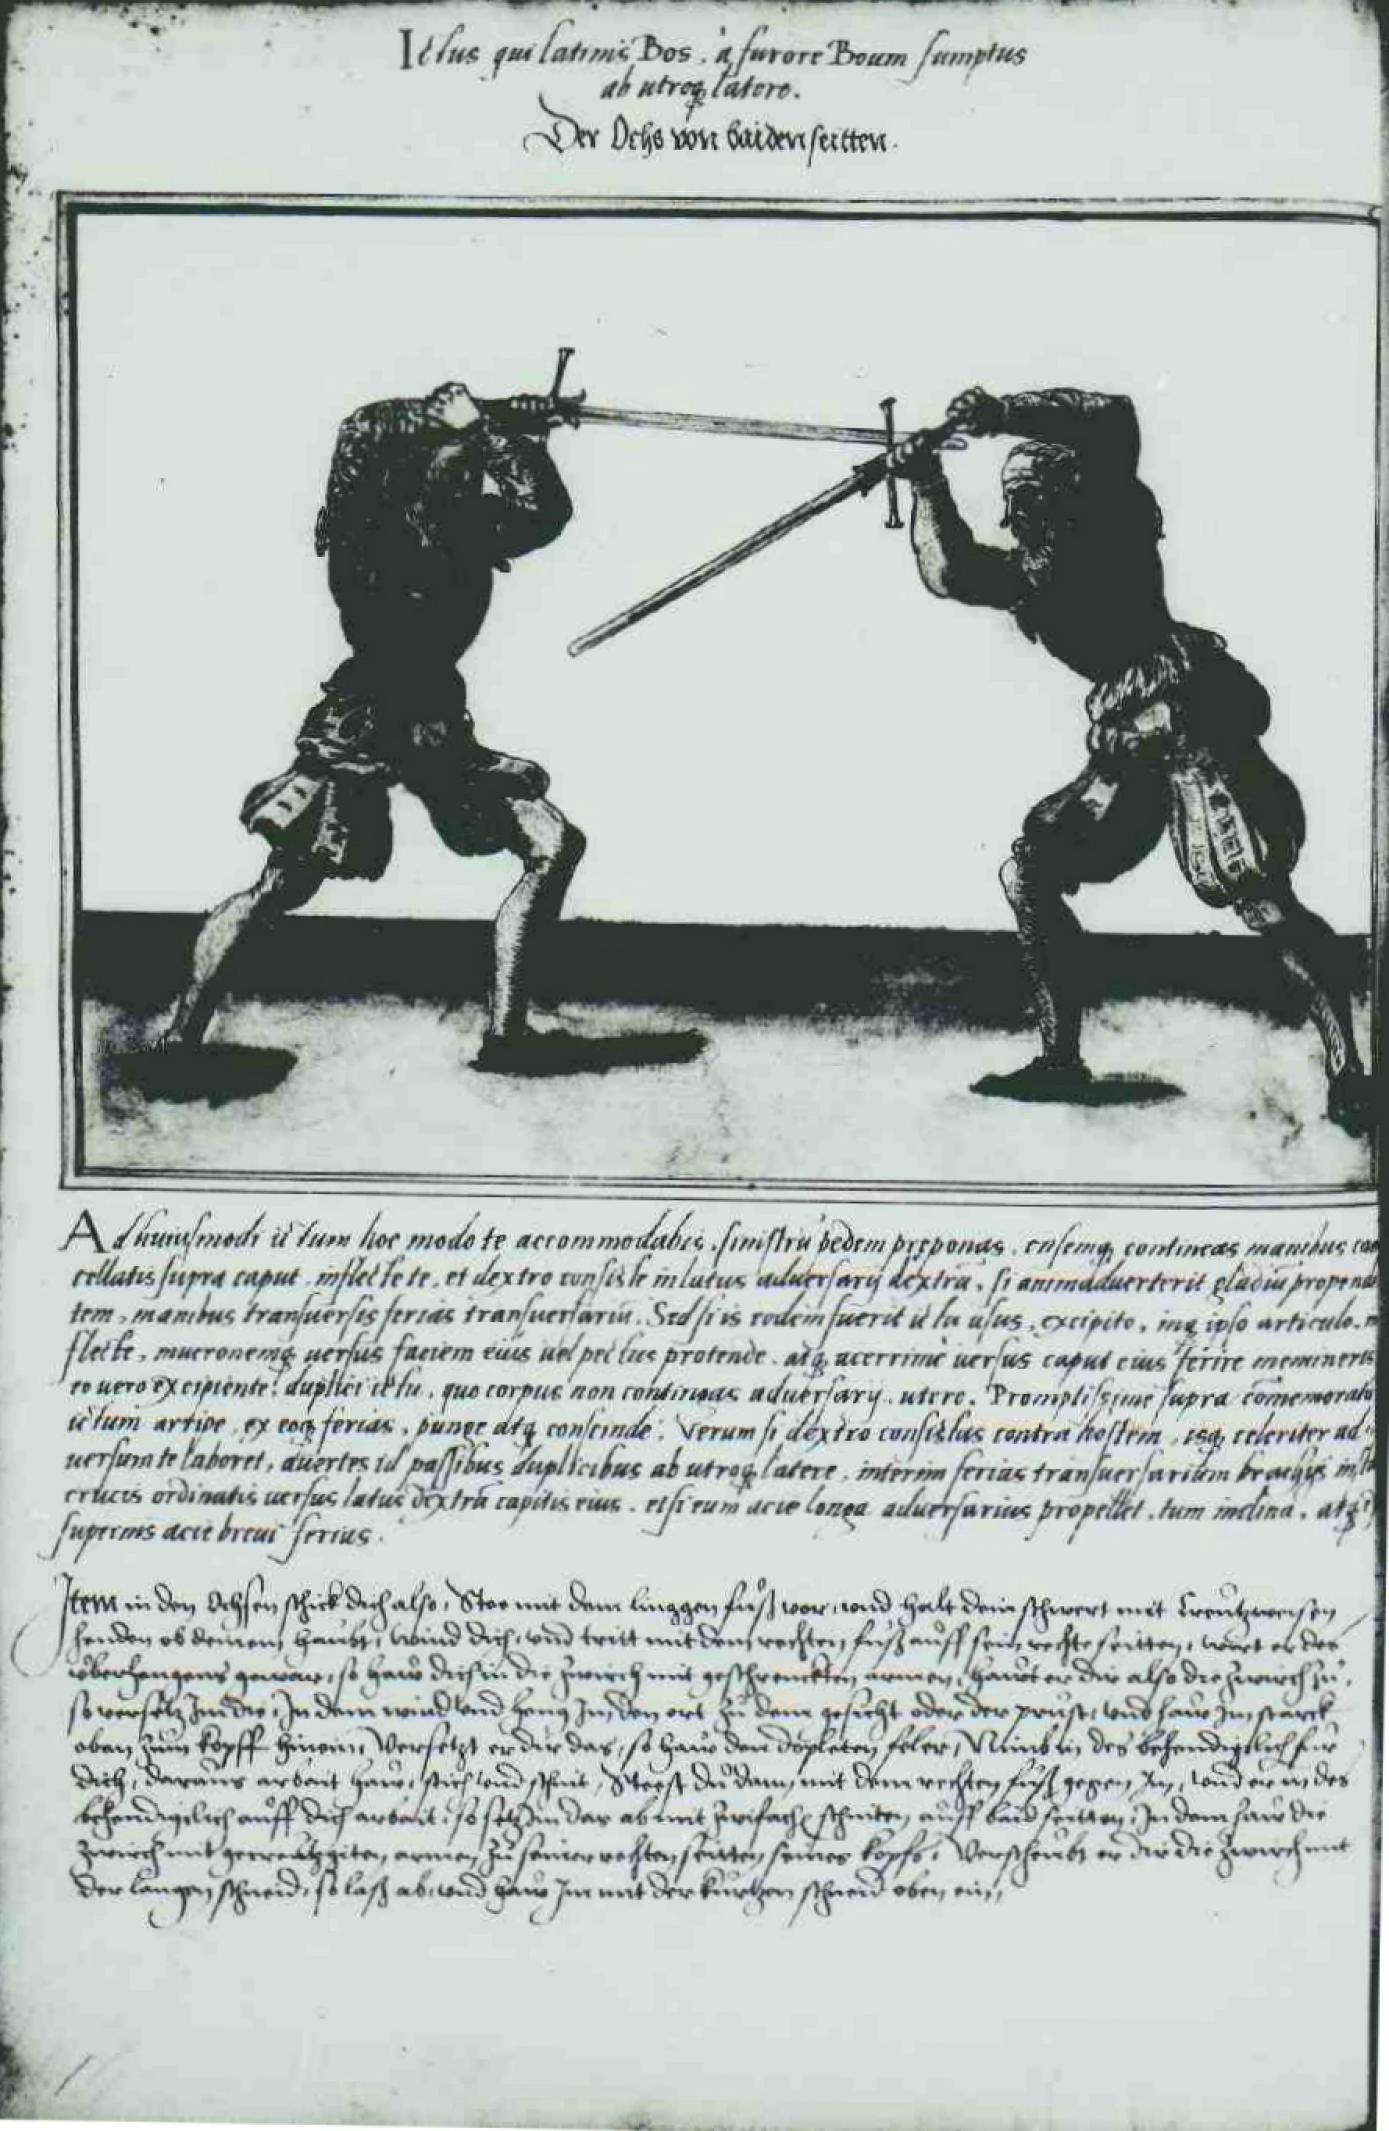 Ictus qui latinis Bos, à furore Boum sumptus
ab utroq₃ latere.
Der Ochs von baiden seitten.
Ad huiusmodi ictum hoc modo te accommodabis, sinistrū pedem preponas, ensemq₃ contineas manibus can
cellatis supra caput, inflecte te, et dextro consiste in latus adversarij dextrū, si animadverterit gladiū propenden
tem, manibus transversis ferias transversariū. Sed si is eodem fuerit ictu usus, excipito, inq₃ ipso articulo, in
flecte, mucronemq₃ versus faciem eius vel pectus protende, atq₃ acerrimè versus caput eius ferire memineris
eo vero excipiente, duplici ictu, quo corpus non contingas adversarij, utere. Promptissime supra cōmemoratū
ictum arripe, ex eoq₃ ferias, punge atq₃ conscinde. Verum si dextro consistas contra hostem, isq₃ celeriter ad
versum te laboret, avertes id passibus duplicibus ab utroq₃ latere, interim ferias transversarium brachijs instar
crucis ordinatis versus latus dextrū capitis eius, et si eum acie longa adversarius propellet, tum inclina, atq₃
supernis acie brevi ferias.
Item in den Ochsen schick dich also, Stee mit dem linggen fůß vor, vnd halt dein schwert mit Creutzweisen
henden ob deinem haubt, wind dich, vnd tritt mit dem rechten fůß auff sein rechte seitten, wirt er des
vberhangens gewar, so haw dich in die zwirch mit geschrenckten armen, hawt er dir also die zwirch zů,
so versetz Im die, In dem wind vnd heng Im den ort zů dem gesicht oder der prust, vnd haw Im starck
oben zum kopff hinein, Versetzt er dir das, so haw den dopleten feler, Nimb in des behendigclich für
dich, daraus arbait haw, stich vnd schnit, Steest du dann mit dem rechten fůß gegen Im, vnd er in des
behendigclich auff dich arbait, so setz Im das ab mit zwifache schniten auff baid seitten, In dem haw die
zwirch mit gecreutzgiten armen zů seiner rechten seitten seines kopfs, Verscheubt er dir die zwirch mit
der langen schneid, so laß ab, vnd haw Im mit der kurtzen schneid oben ein,